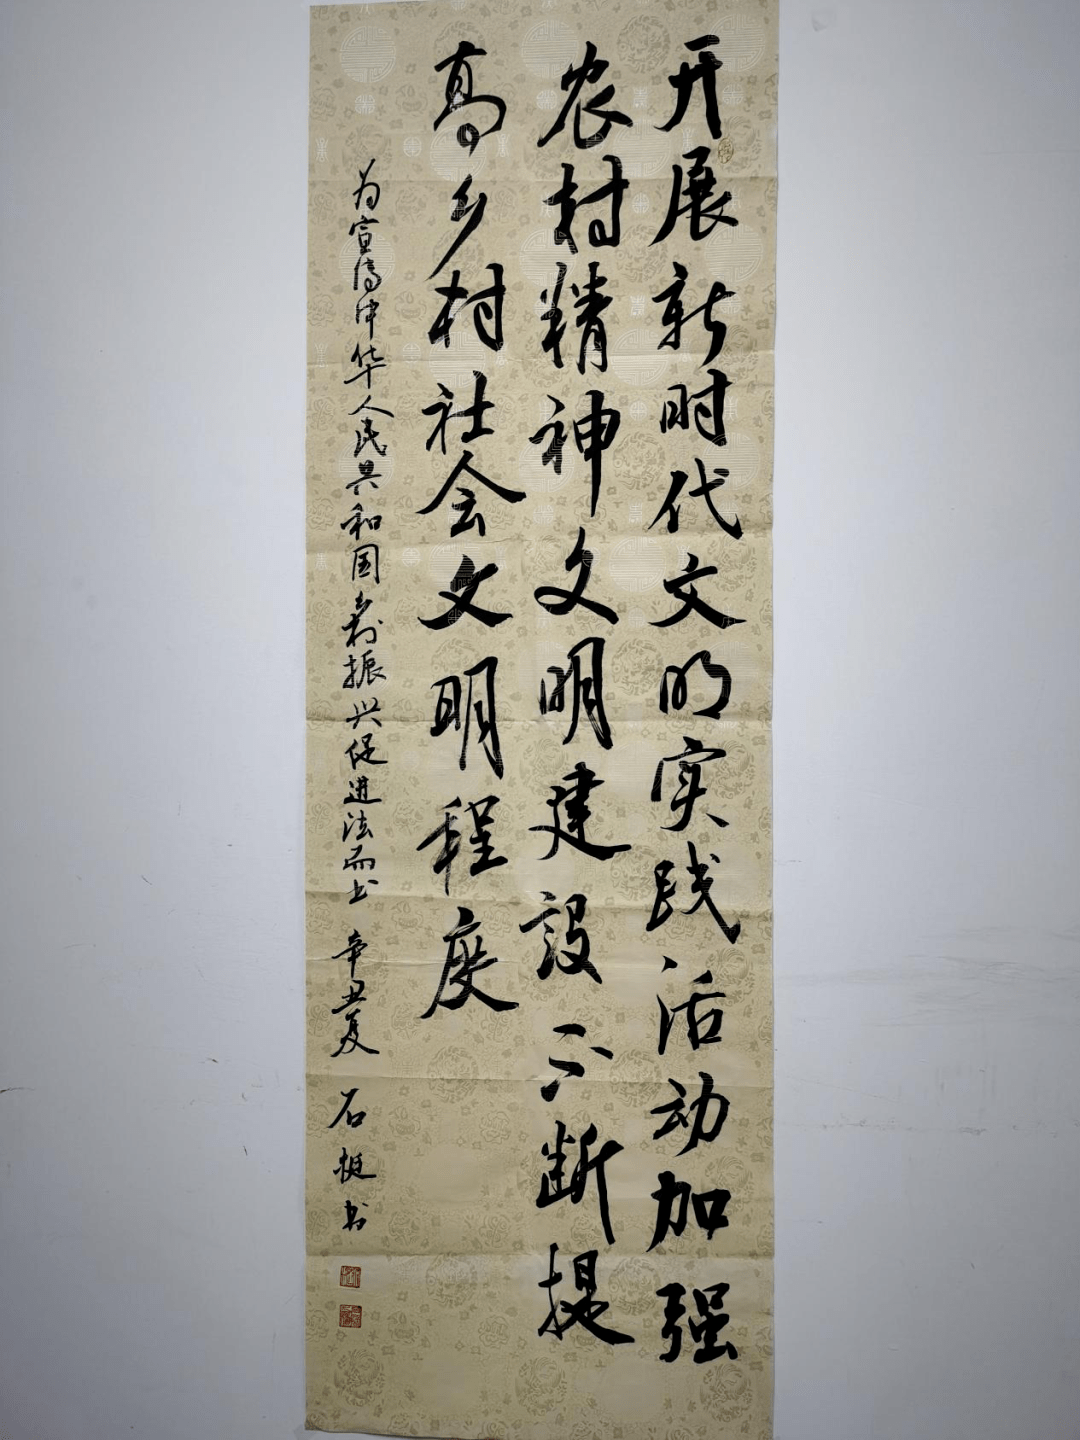 开展新时代文明实践活动加强
农村精神文明建设不断提
高乡村社会文明程度
为宣传中华人民共和国乡村振兴促进法而书 辛丑夏 石挺书